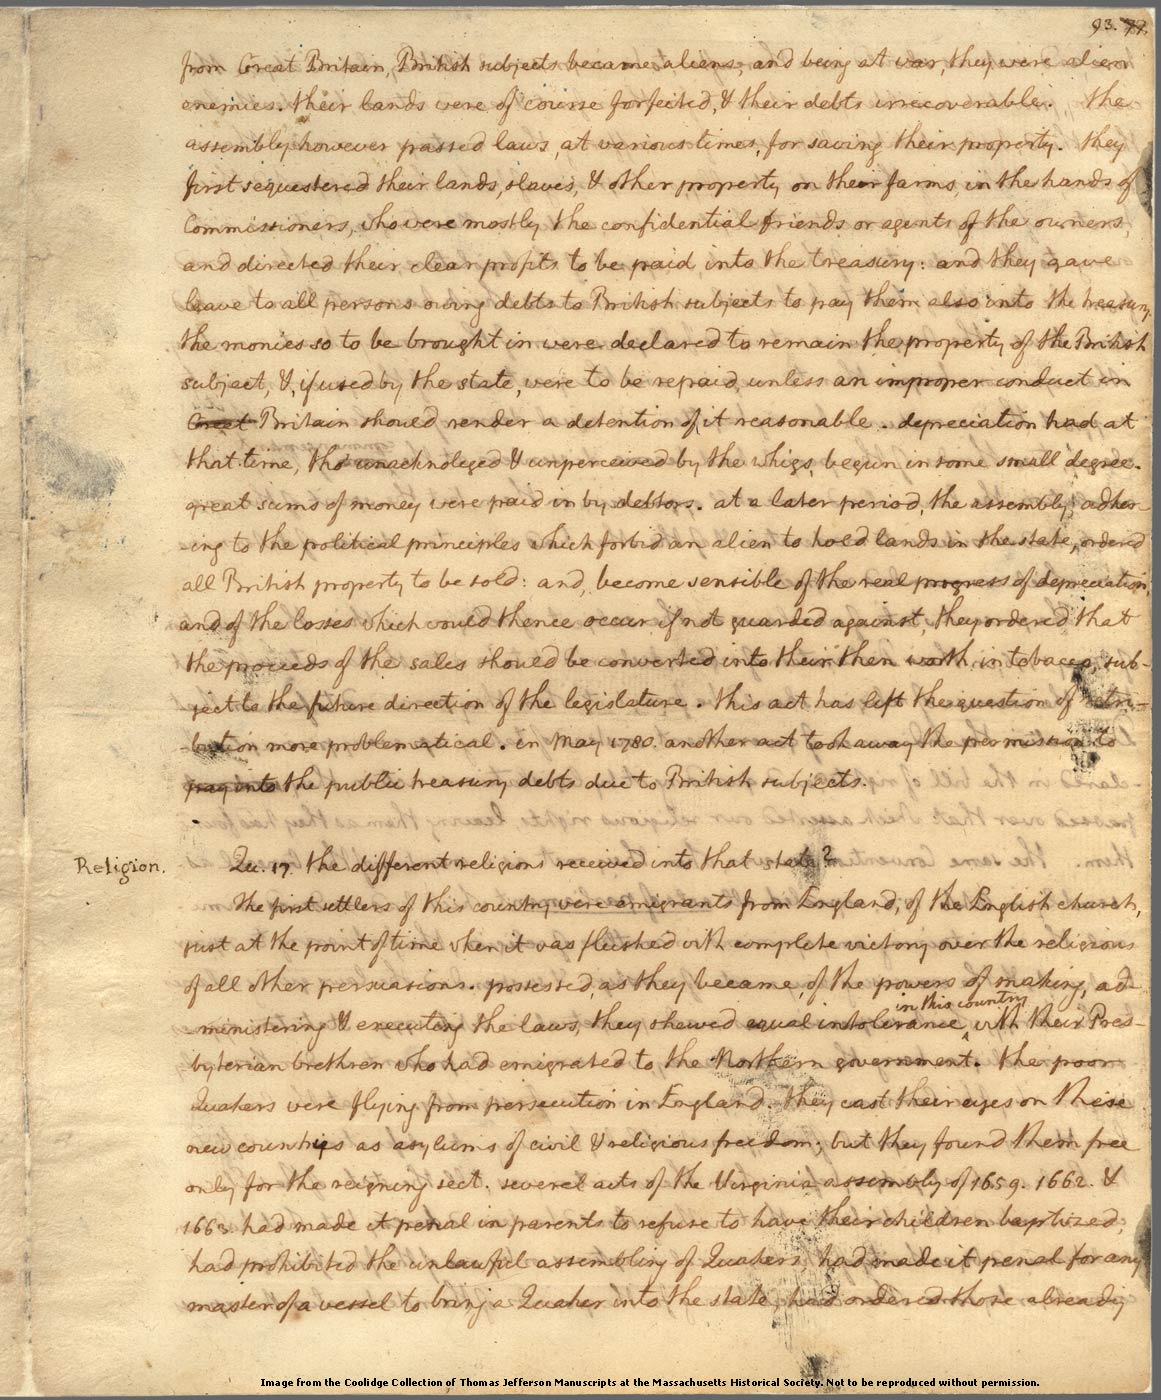 93. 79.
from Great Britain, British subjects became aliens, and being at war, they were alien
enemies. their lands were of course forfeited, & their debts irrecoverable. the
assembly however passed laws, at various times, for saving their property. they
first sequestered their lands, slaves, & other property on their farms, in the hands of
Commissioners, who were mostly the confidential friends or agents of the owners,
and directed their clear profits to be paid into the treasury: and they gave
leave to all persons owing debts to British subjects to pay them also into the treasury.
the monies so to be brought in were declared to remain the property of the British
subject, &, if used by the state, were to be repaid, unless an improper conduct in
Great Britain should render a detention of it reasonable. depreciation had at
that time, tho' unacknoleged & unperceived by the whigs, begun in some small degree.
great sums of money were paid in by debtors. at a later period, the assembly, adher-
-ing to the political principles which forbid an alien to hold lands in the state, ordered
all British property to be sold: and, become sensible of the real progress of depreciation,
and of the losses which would thence occur if not guarded against, they ordered that
the proceeds of the sales should be converted into their then worth in tobacco, sub-
-ject to the future direction of the legislature. this act has left the question of retri-
-bution more problematical. in May 1780. another act took away the permission to
pay into the public treasury debts due to British subjects.
Religion.
Qu. 17. the different religions received into that state?
The first settlers of this country were emigrants from England, of the English church,
just at the point of time when it was flushed with complete victory over the religious
of all other persuasions. possessed, as they became, of the powers of making, ad-
in this country
-ministering & executing the laws, they shewed equal intolerance ‸ with their Pres-
-byterian brethren who had emigrated to the Northern government. the poor
Quakers were flying from persecution in England. they cast their eyes on these
new countries as asylums of civil & religious freedom; but they found them free
only for the reigning sect. several acts of the Virginia assembly of 1659. 1662. &
1663. had made it penal in parents to refuse to have their children baptized;
had prohibited the unlawful assembling of Quakers; had made it penal for any
master of a vessel to bring a Quaker into the state; had ordered those already
Image from the Coolidge Collection of Thomas Jefferson Manuscripts at the Massachusetts Historical Society. Not to be reproduced without permission.